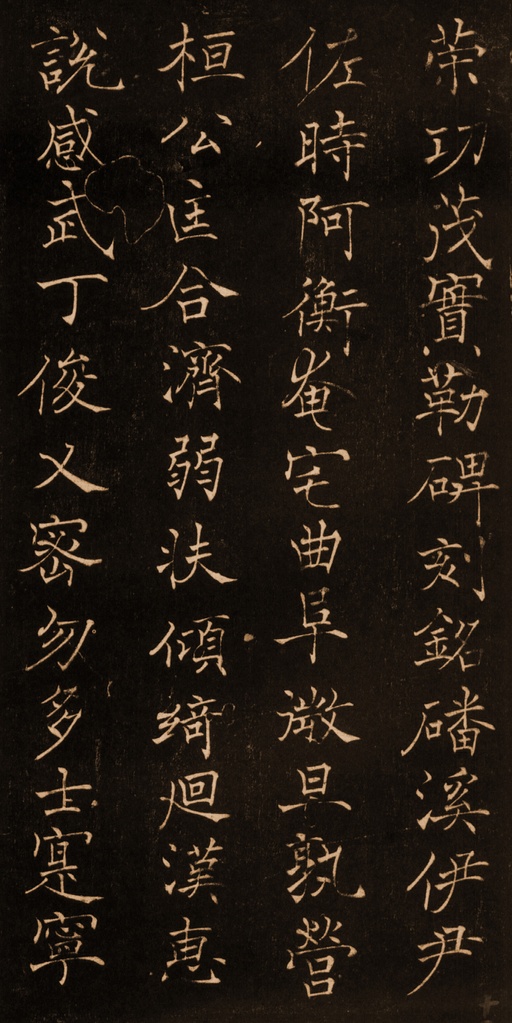 策功茂實勒碑刻銘磻溪伊尹
佐時阿衡奄宅曲阜微旦孰營
桓公匡合濟弱扶傾綺廻漢惠
說感武丁俊乂密勿多士寔寧